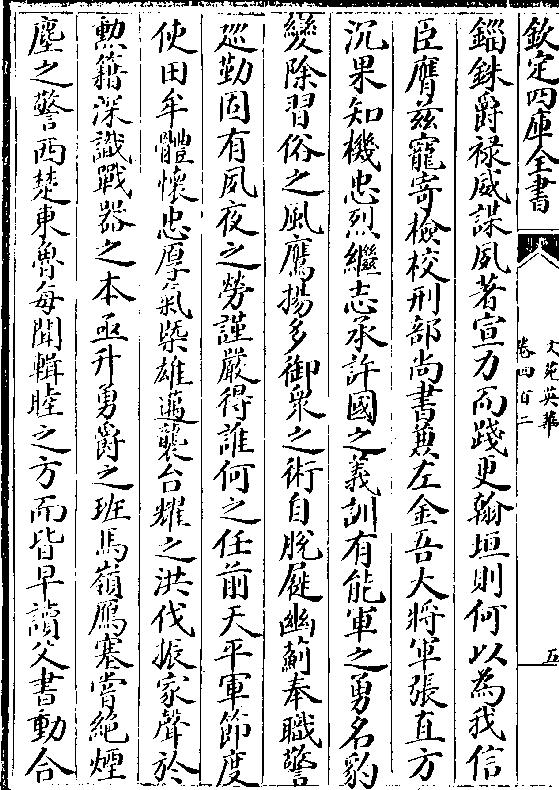 欽定四庫全書
文苑英華
卷四百二
五
錙銖爵禄威謀夙著宣力而踐更翰垣則何以為我信
臣膺兹寵寄檢校刑部尚書兼左金吾大將軍張直方
沉果知機忠烈繼志承許國之義訓有能軍之勇名豹
變除習俗之風鷹揚多御衆之術自脱屣幽薊奉職警
廵勤固有夙夜之勞謹嚴得誰何之任前天平軍節度
使田牟體懷忠厚氣槩雄邁襲台耀之洪伐振家聲於
勲籍深識戰器之本亟升勇爵之班馬嶺鴈塞嘗絶煙
塵之警西楚東魯每聞輯睦之方而皆早讀父書動合